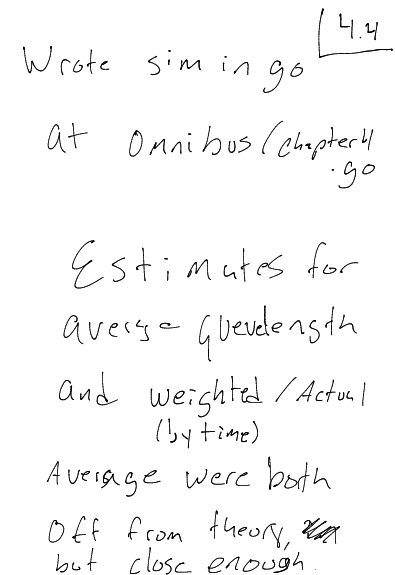 4.4
Wrote sim in go
at Omnibus/chapter4
.go
Estimates for
average Queuelength
and weighted/Actual
(by time)
Average were both
off from theory,
but close enough.